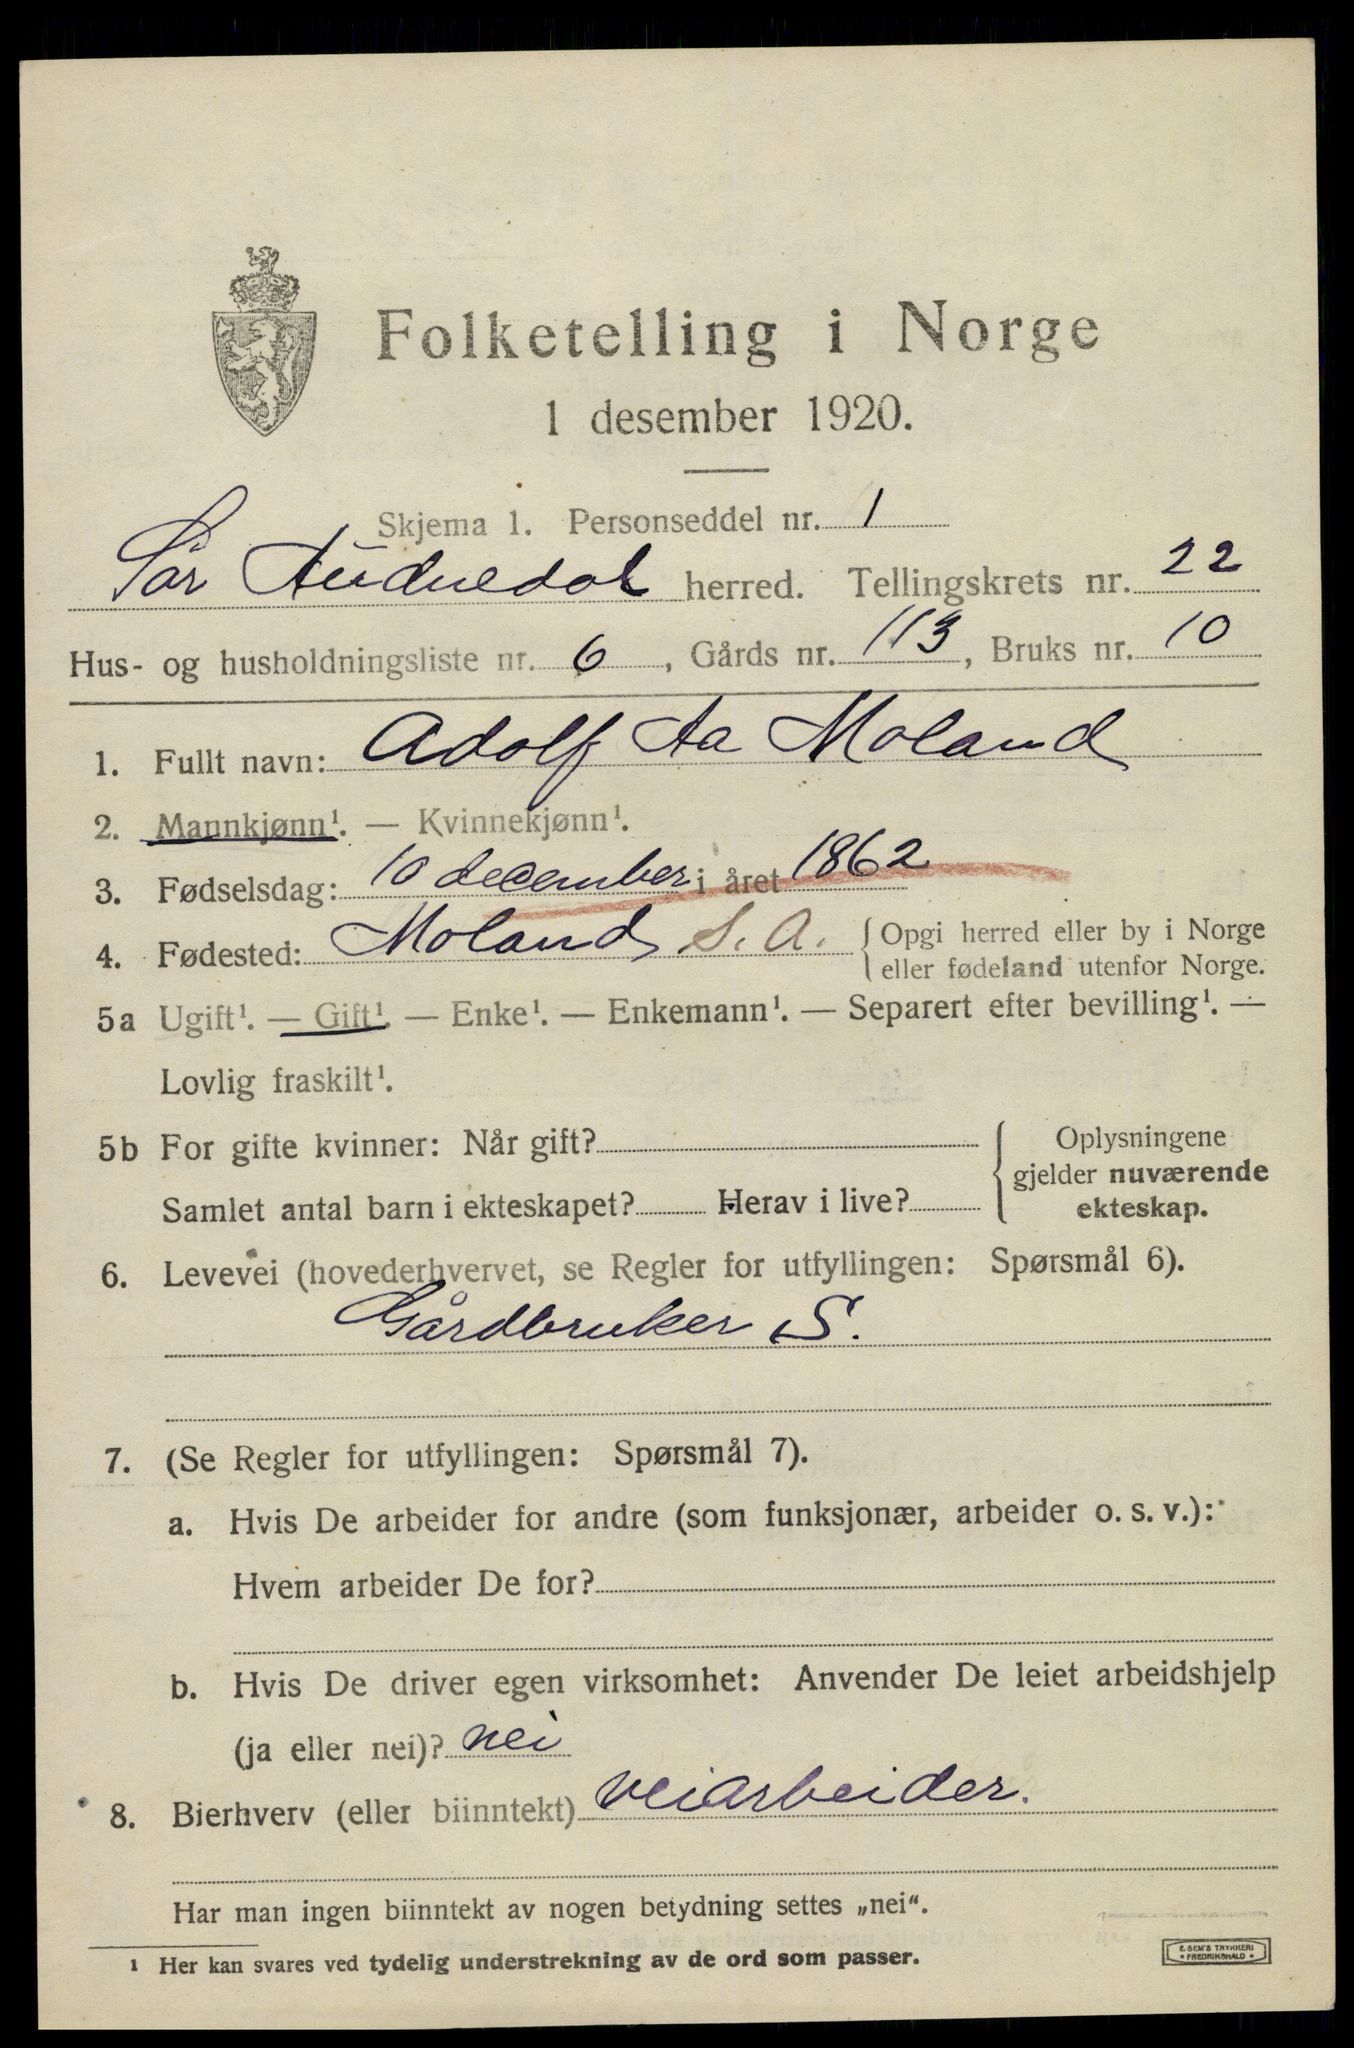 Folketelling i Norge
1 desember 1920.
Skjema 1. Personseddel nr. 1
Sør Audnedal herred. Tellingskrets nr. 22
Hus- og husholdningsliste nr. 6, Gårds nr. 113, Bruks nr. 10
1. Fullt navn: Adolf Aa Moland
2. Mannkjønn¹. — Kvinnekjønn¹.
3. Fødselsdag: 10 december i året 1862
4. Fødested: Moland S. A. {Opgi herred eller by i Norge
eller fødeland utenfor Norge.
5a Ugift¹. — Gift¹. — Enke¹. — Enkemann¹. — Separert efter bevilling¹. —
Lovlig fraskilt¹.
5b For gifte kvinner: Når gift?
Samlet antal barn i ekteskapet? Herav i live?
Oplysningene
gjelder nuværende
ekteskap.
6. Levevei (hovederhvervet, se Regler for utfyllingen: Spørsmål 6).
Gårdbruker S.
7. (Se Regler for utfyllingen: Spørsmål 7).
a. Hvis De arbeider for andre (som funksjonær, arbeider o. s. v.):
Hvem arbeider De for?
b. Hvis De driver egen virksomhet: Anvender De leiet arbeidshjelp
(ja eller nei)? nei
8. Bierhverv (eller biinntekt) veiarbeider.
Har man ingen biinntekt av nogen betydning settes „nei“.
¹ Her kan svares ved tydelig understrekning av de ord som passer.
E. SEM'S TRYKKERI
• FREDRIKSHALD •